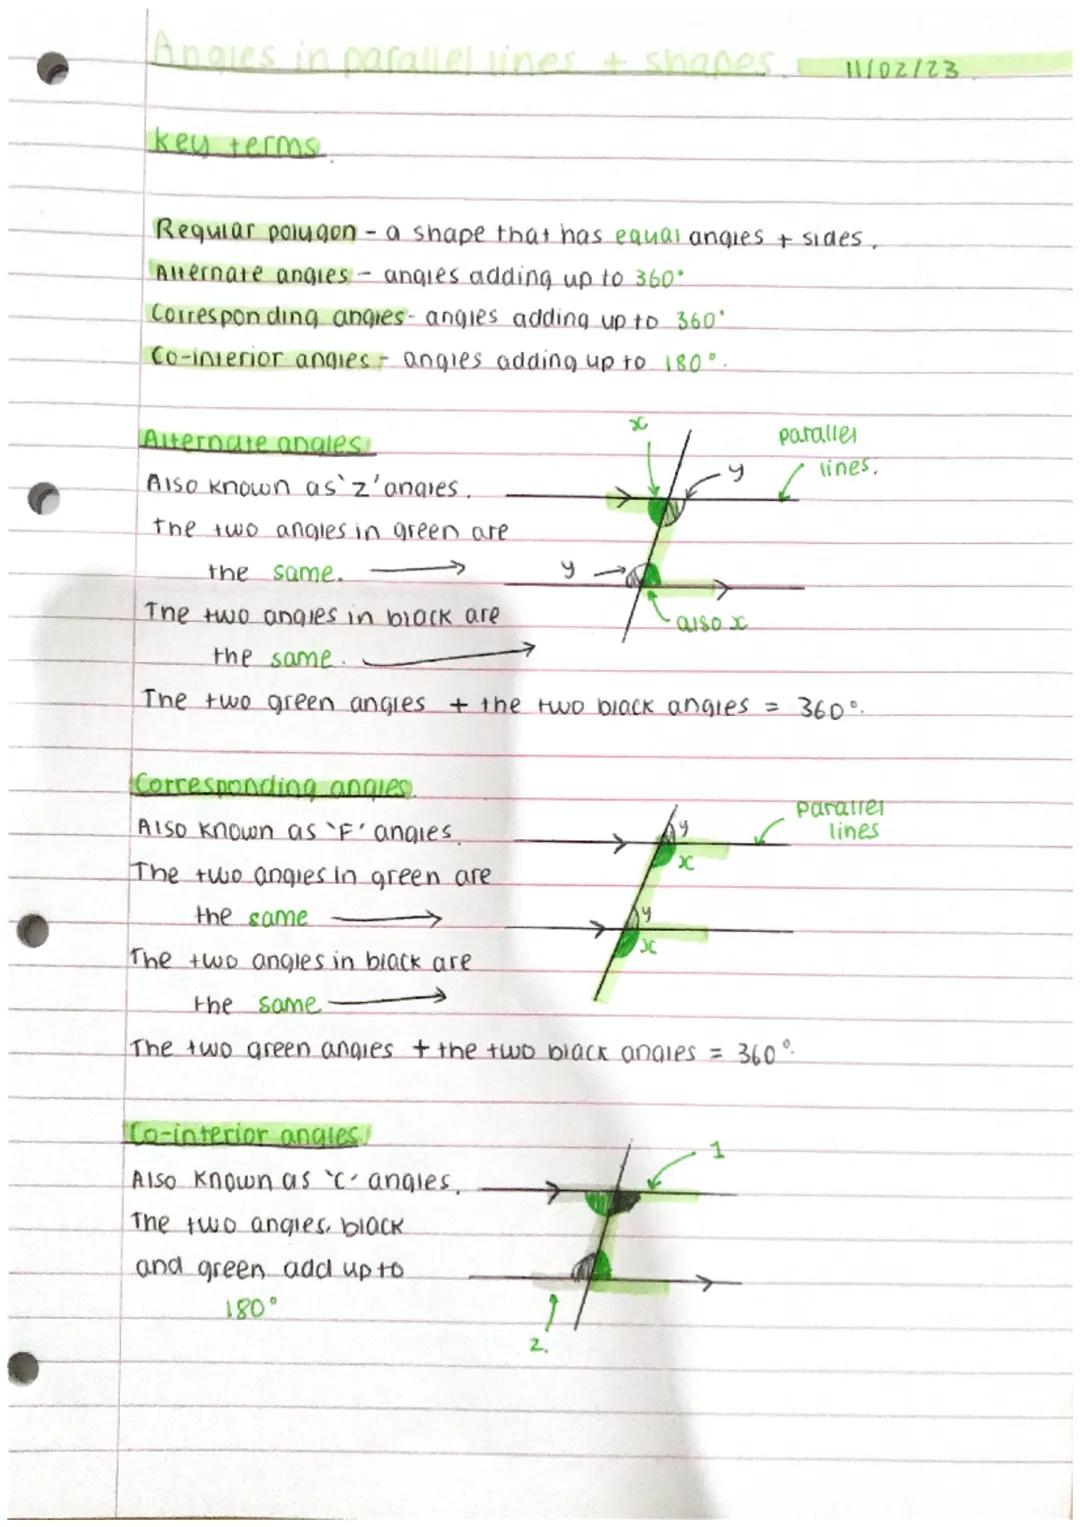 Angles in parallel lines + shapes. 11/02/23
key terms.
Regular polygon - a shape that has equal angles + sides.
Alternate angles - angles adding up to 360°
Corresponding angles - angles adding up to 360°
Co-interior angles - angles adding up to 180°.
Alternate angles
Also known as 'z' angles.
the two angles in green are
the same.
The two angles in black are
the same.
x
y
parallel
lines.
y
also x
The two green angles + the two black angles = 360°.
Corresponding angles.
Also known as 'F' angles.
The two angles in green are
the same
The two angles in black are
the same
parallel
lines
y
x
y
x
The two green angles + the two black angles = 360°.
Co-interior angles
Also known as 'C' angles.
The two angles, black
and green add up to
180°
1
2.